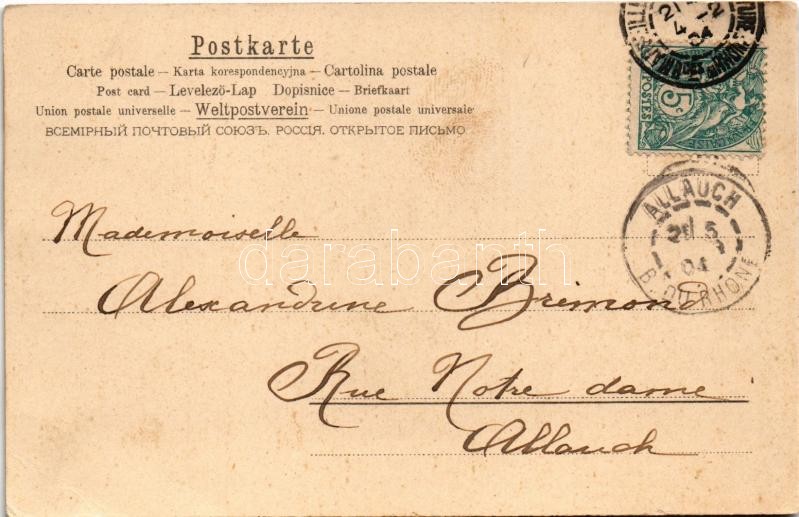 Postkarte
Carte postale — Karta korespondencyjna — Cartolina postale
Post card — Levelező-Lap Dopisnice — Briefkaart
Union postale universelle — Weltpostverein — Unione postale universale
ВСЕМІРНЫЙ ПОЧТОВЫЙ СОЮЗЪ. РОССІЯ. ОТКРЫТОЕ ПИСЬМО
5c
POSTES
ALLAUCH
04
B. DU RHONE
Mademoiselle
darabanth
Alexandrine Brémond
Rue Notre dame
Allauch